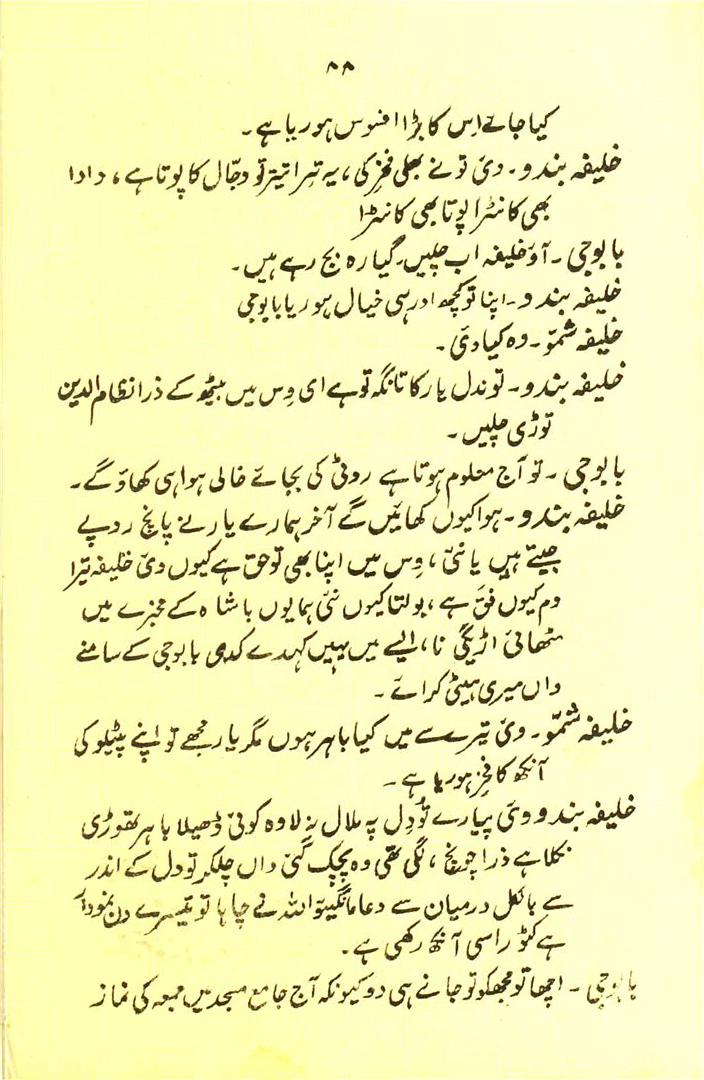 ۸۸
کیا جائے اس کا بڑا افسوس ہو ریا ہے۔
خلیفہ بندو۔ وئ تو نے بھلی فخر کی، یہ تِرا تیتر تو دجّال کا پوتا ہے، دادا
بھی کانٹرا پوتا بھی کانٹرا
بابوجی۔ آؤ خلیفہ اب چلیں۔ گیارہ بج رہے ہیں۔
خلیفہ بندو۔ اپنا تو کچھ ادر ہی خیال ہو ریا بابوجی
خلیفہ شمّو۔ وہ کیا وئ۔
خلیفہ بندو۔ توندل یار کا تانگہ تو ہے ای وِس میں بیٹھ کے ذرا نظام الدین
توڑی چلیں۔
بابوجی۔ تو آج معلوم ہوتا ہے روٹی کی بجائے خالی ہوا ہی کھاؤ گے۔
خلیفہ بندو۔ ہوا کیوں کھائیں گے آخر ہمارے یار نے پانچ روپے
جیتے ہیں یا نئی، وِس میں اپنا بھی تو حق ہے کیوں وئ خلیفہ تیرا
دم کیوں فق ہے، بولتا کیوں نئی ہمایوں باشاہ کے مخبرے میں
مٹھائی اڑیگی نا، ایسے میں یہیں کہدے کدی بابوجی کے سامنے
واں میری ہیٹی کرائے۔
خلیفہ شمّو۔ وئ تیرے سے میں کیا باہر ہوں مگر یار مجھے تو اپنے پٹیلو کی
آنکھ کا فخر ہو ریا ہے۔
خلیفہ بندو وئ پیارے تُو دِل پہ ملال نہ لا وہ کوئی ڈھیلا باہر تھوڑی
نکلا ہے ذرا چونچ، لگی تھی وہ پچک گئی واں چلکر تو دل کے اندر
سے بالکل درمیان سے دعا مانگیئو اللہ نے چاہا تو تیسرے دن نمودار
ہے کٹورا سی آنکھ رکھی ہے۔
بابوجی۔ اچھا تو مجھکو تو جانے ہی دو کیونکہ آج جامع مسجد میں جمعہ کی نماز